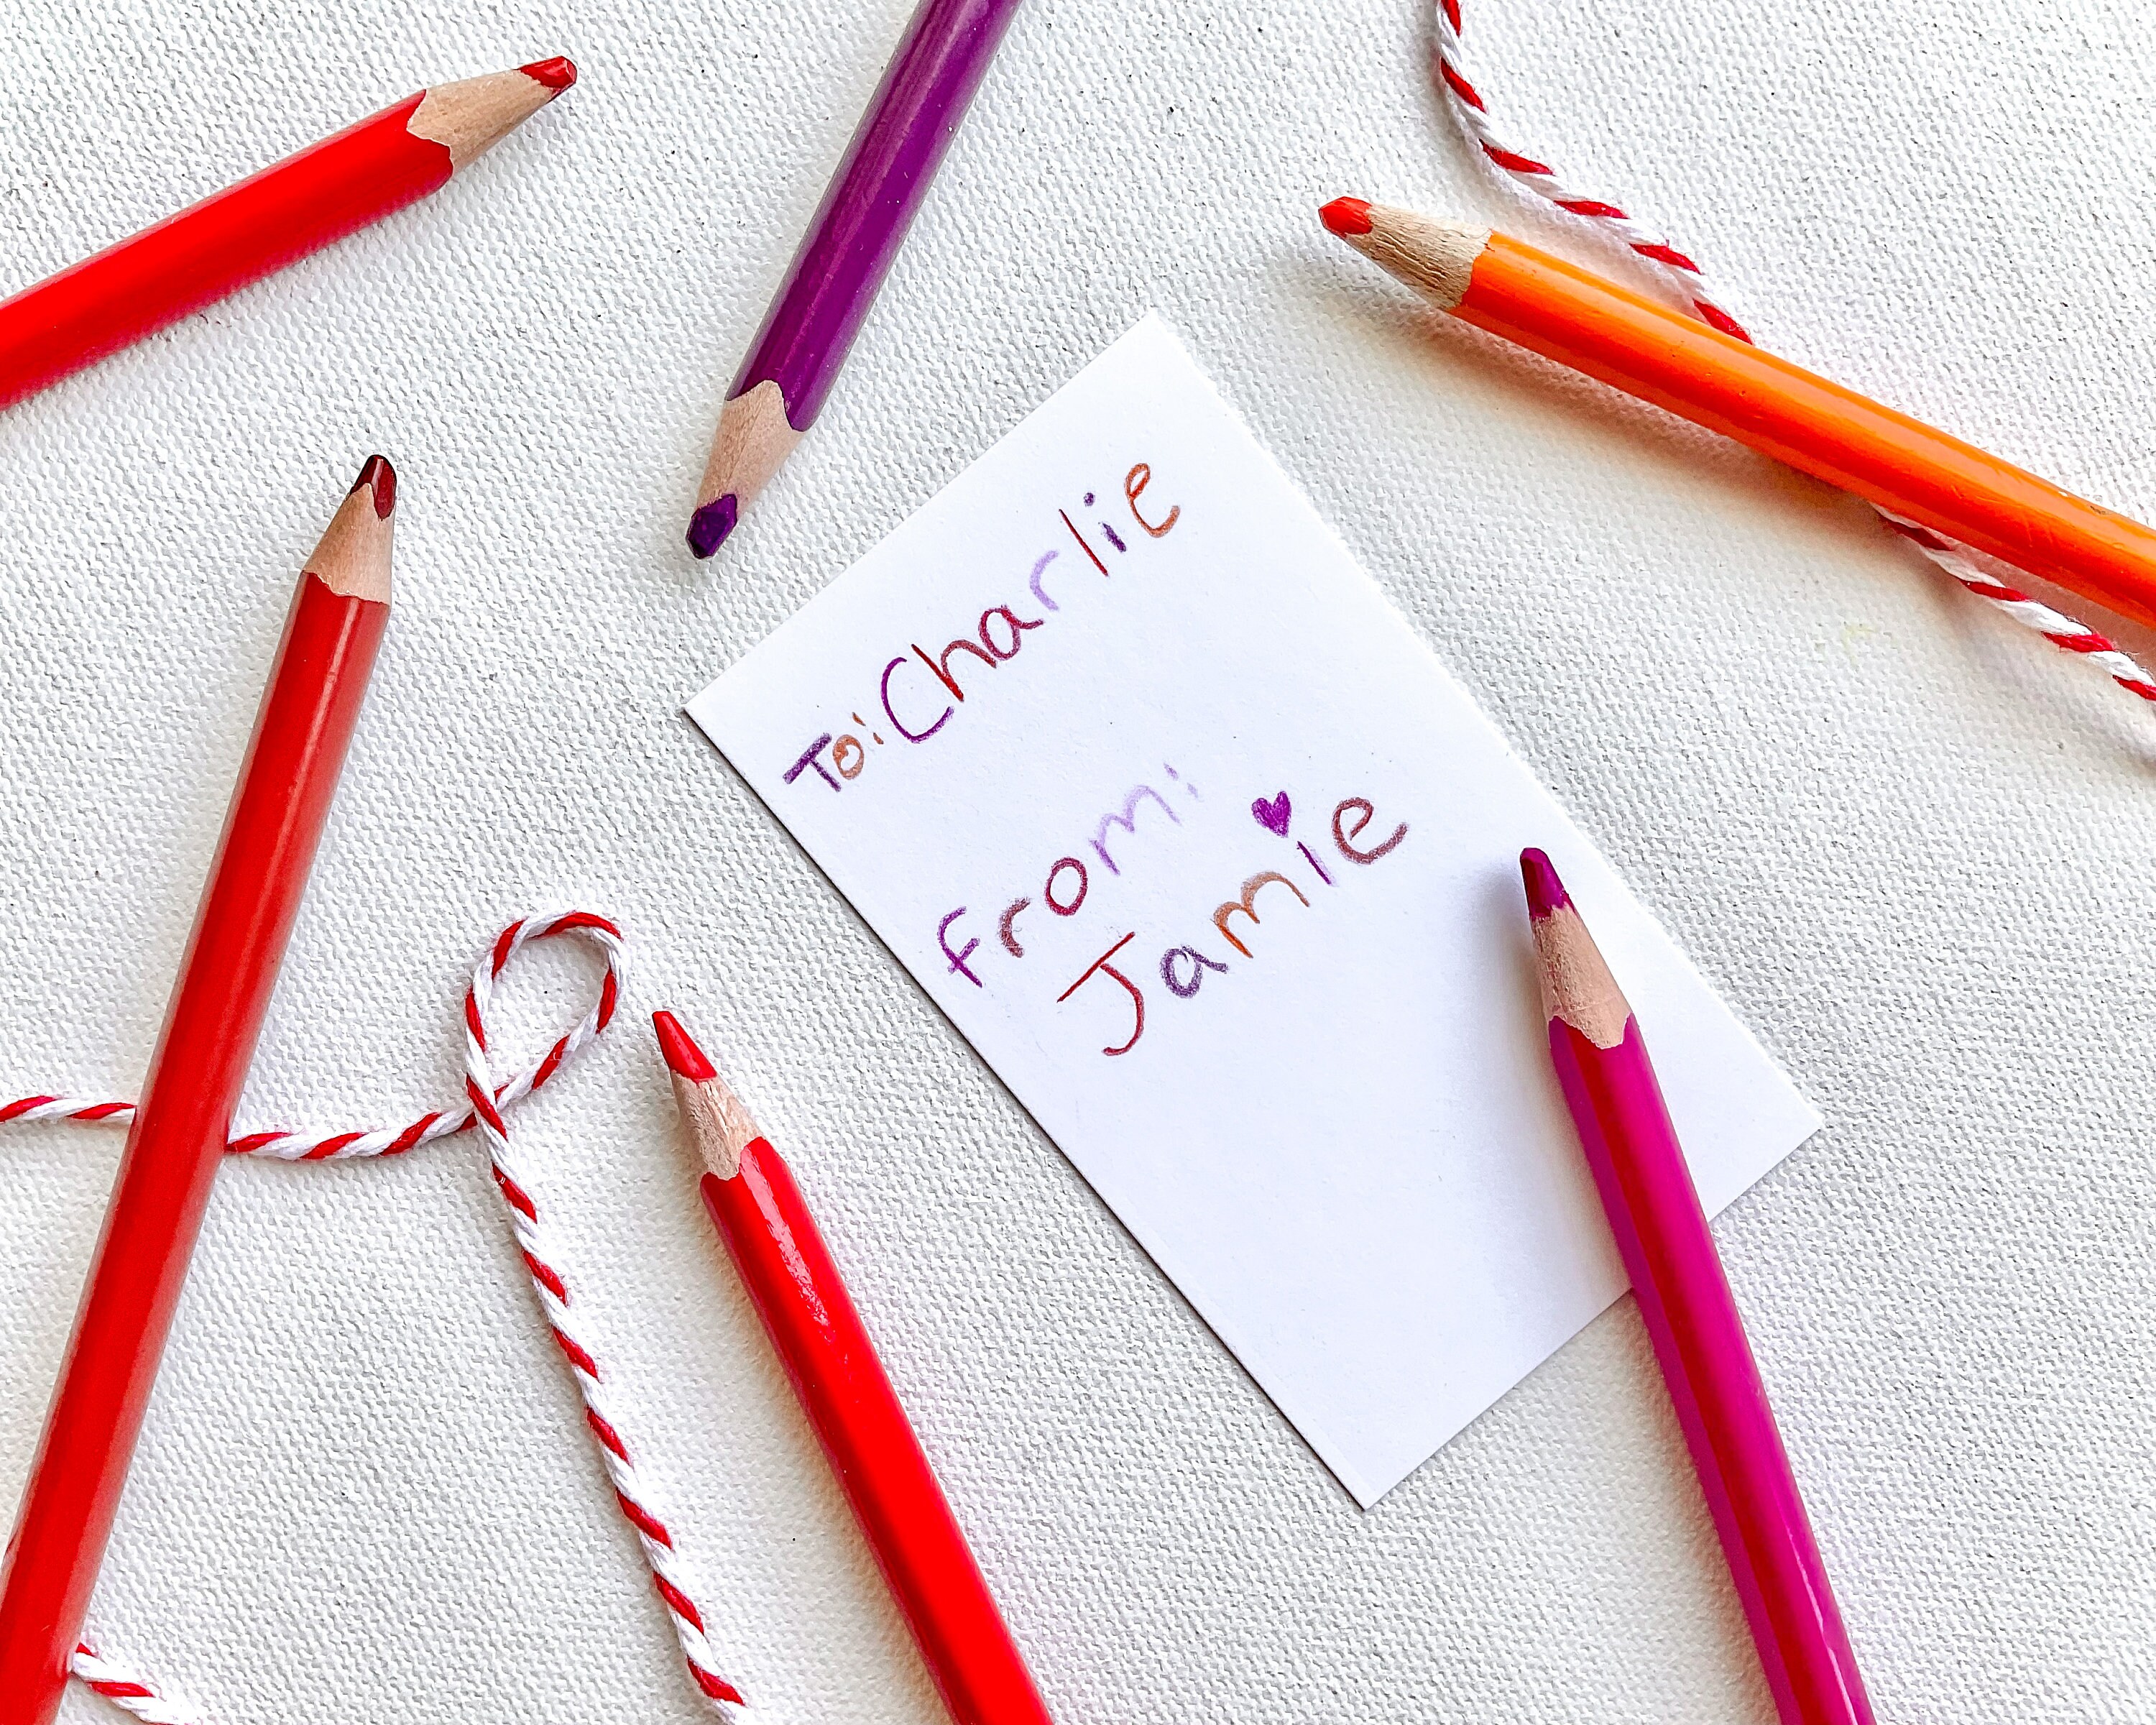 To: Charlie
from:
Jamie